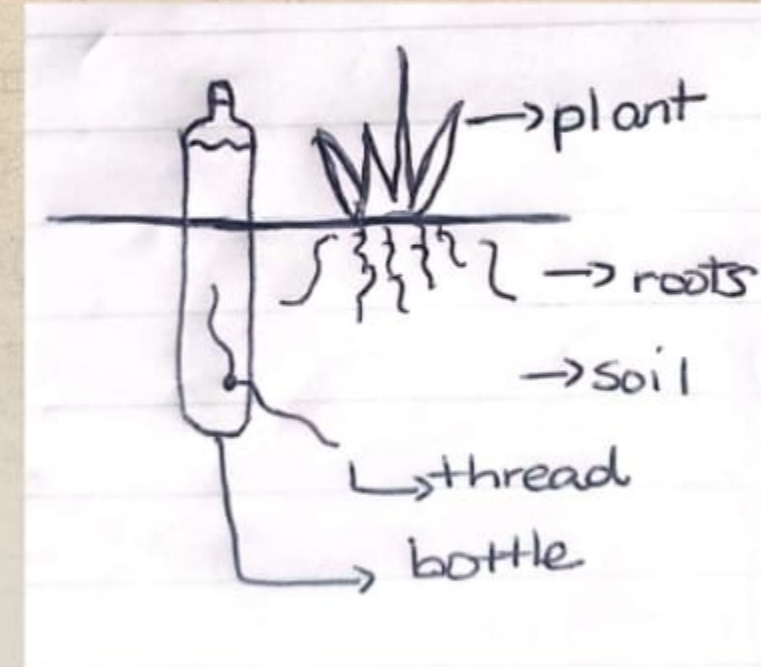 plant
roots
soil
thread
bottle